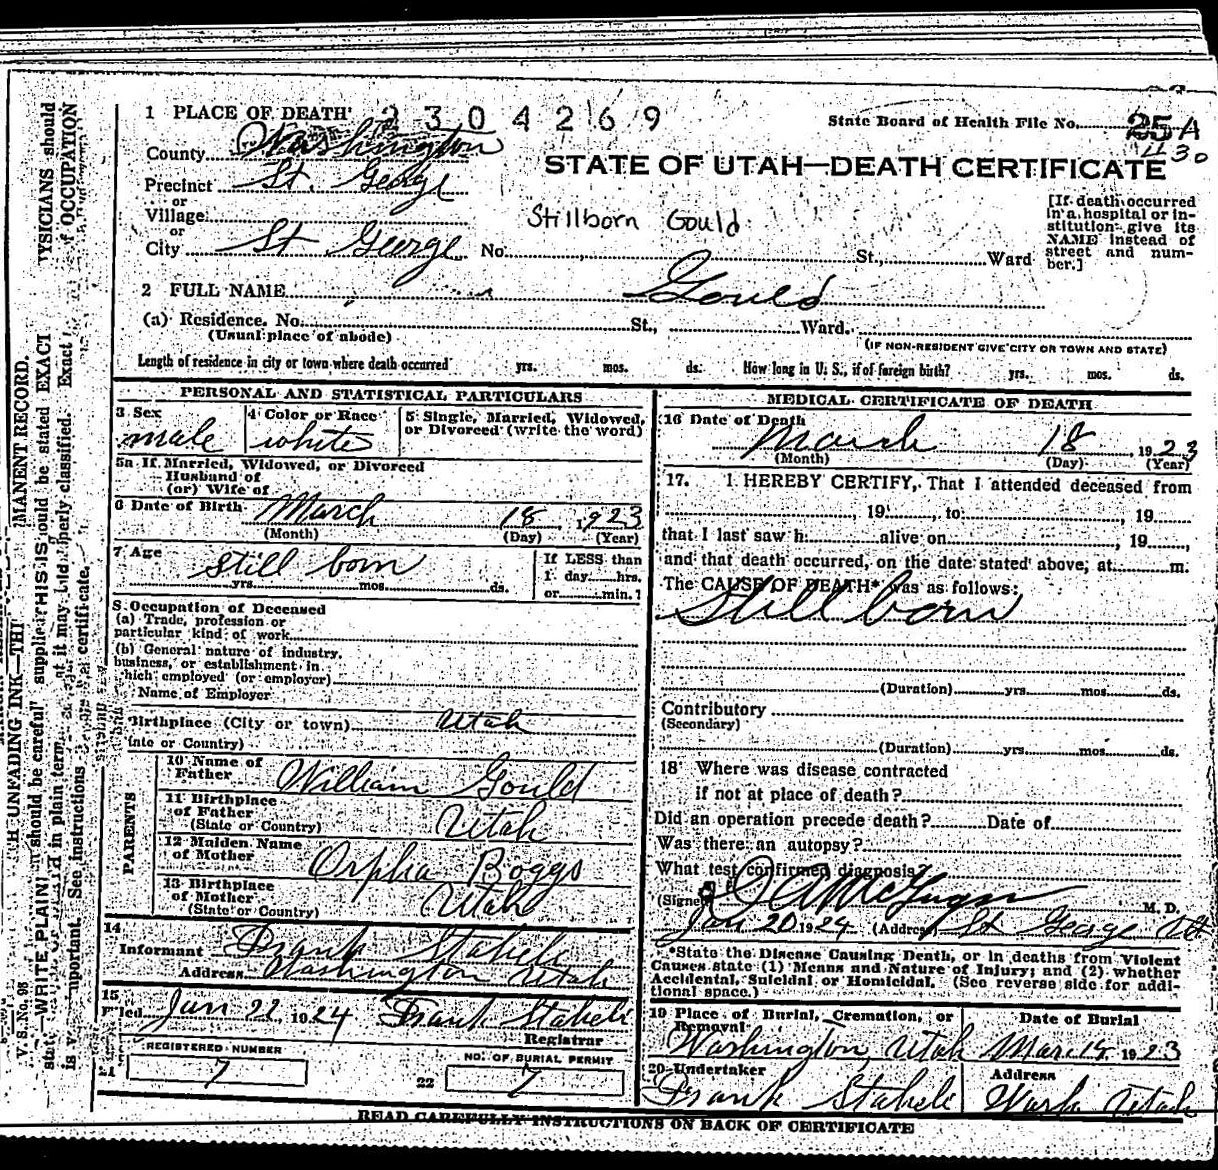 1 PLACE OF DEATH 2304269
State Board of Health File No. 25A
430
County Washington
STATE OF UTAH—DEATH CERTIFICATE
Precinct St. George
or
Village
or
City St George No. St., Ward
Stillborn Gould
[If death occurred in a hospital or in-
stitution give its
NAME instead of
street and num-
ber.]
2 FULL NAME Gould
(a) Residence. No. St., Ward.
(Usual place of abode)
(IF NON-RESIDENT GIVE CITY OR TOWN AND STATE)
Length of residence in city or town where death occurred yrs. mos. ds. How long in U. S., if of foreign birth? yrs. mos. ds.
PERSONAL AND STATISTICAL PARTICULARS
3 Sex male
4 Color or Race white
5 Single, Married, Widowed,
or Divorced (write the word)
5a If Married, Widowed, or Divorced
Husband of
(or) Wife of
6 Date of Birth March 18 1923
(Month) (Day) (Year)
7 Age still born
yrs. mos. ds.
If LESS than
1 day hrs.
or min.
8. Occupation of Deceased
(a) Trade, profession or
particular kind of work
(b) General nature of industry,
business, or establishment in
which employed (or employer)
Name of Employer
Birthplace (City or town) Utah
or Country)
PARENTS
10 Name of
Father William Gould
11 Birthplace
of Father Utah
(State or Country)
12 Maiden Name
of Mother Orpha Boggs
13 Birthplace
of Mother Utah
(State or Country)
14
Informant Frank Staheli
Address Washington Utah
15
Filed Jan 22 1924 Frank Staheli
Registrar
REGISTERED NUMBER
21 7
NO. OF BURIAL PERMIT
22 7
MEDICAL CERTIFICATE OF DEATH
16 Date of Death
March 18 1923
(Month) (Day) (Year)
17. I HEREBY CERTIFY, That I attended deceased from
, 19 , to , 19
that I last saw h alive on , 19 ,
and that death occurred, on the date stated above, at m.
The CAUSE OF DEATH* was as follows:
Still born
(Duration) yrs. mos. ds.
Contributory
(Secondary)
(Duration) yrs. mos. ds.
18 Where was disease contracted
if not at place of death?
Did an operation precede death? Date of
Was there an autopsy?
What test confirmed diagnosis?
(Signed M. D.
Jan 20 1924 (Address St George Ut
*State the Disease Causing Death, or in deaths from Violent
Causes state (1) Means and Nature of Injury; and (2) whether
Accidental, Suicidal or Homicidal. (See reverse side for addi-
tional space.)
19 Place of Burial, Cremation, or
Removal
Washington, Utah
Date of Burial
Mar 1923
20 Undertaker
Frank Staheli
Address
Wash Utah
READ CAREFULLY INSTRUCTIONS ON BACK OF CERTIFICATE
V. S. No. 98
MANENT RECORD.
H UNFADING INK—THI
WRITE PLAINL
should be careful
supplie
ould be stated EXACT
YSICIANS should
in plain term
at it may
perly classified. Exact
of OCCUPATION
See instructions
certificate.